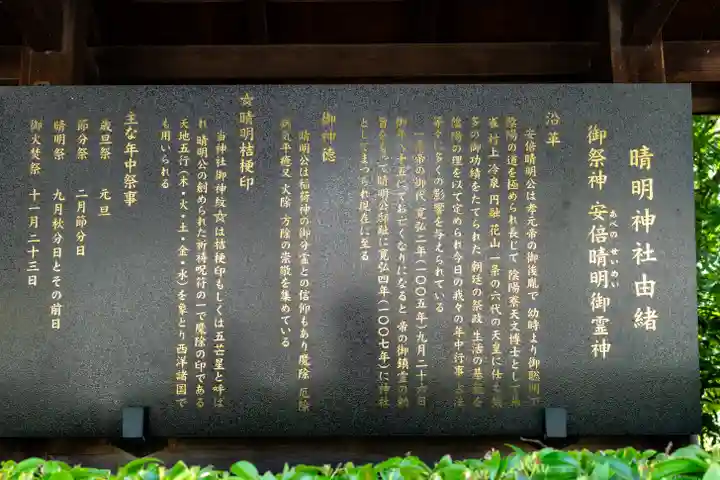 晴明神社由緒
御祭神 安倍晴明御霊神
あべの せいめい
沿革
安倍晴明公は孝元帝の御後胤で 幼時より御聡明で
陰陽の道を極められ長じて 陰陽寮天文博士として
村上 冷泉 円融 花山 一条の六代の天皇に仕え
多の御功績をたてられた 朝廷の祭政 生活の基
陰陽の理を以て定められ今日の我々の年中行事
等々に多くの影響を与えられている
一条帝の御代 寛弘二年(一〇〇五年)九月二十六日
御年八十五にてお亡くなりになると 帝の御鎮霊の
旨 晴明公邸趾に寛弘四年(一〇〇七年)に神社
としてまつられ現在に至る
御神徳
晴明公は稲荷神の御分霊との信仰もあり魔除 厄除
病気平癒又 火除 方除の崇敬を集めている
☆晴明桔梗印
当神社御神紋☆は桔梗印もしくは五芒星と呼ば
れ 晴明公の創められた祈祷呪符の一で魔除の印である
天地五行(木・火・土・金・水)を象とり西洋諸国で
も用いられる
主な年中祭事
歳旦祭 元旦
節分祭 二月節分日
晴明祭 九月秋分日とその前日
御火焚祭 十一月二十三日